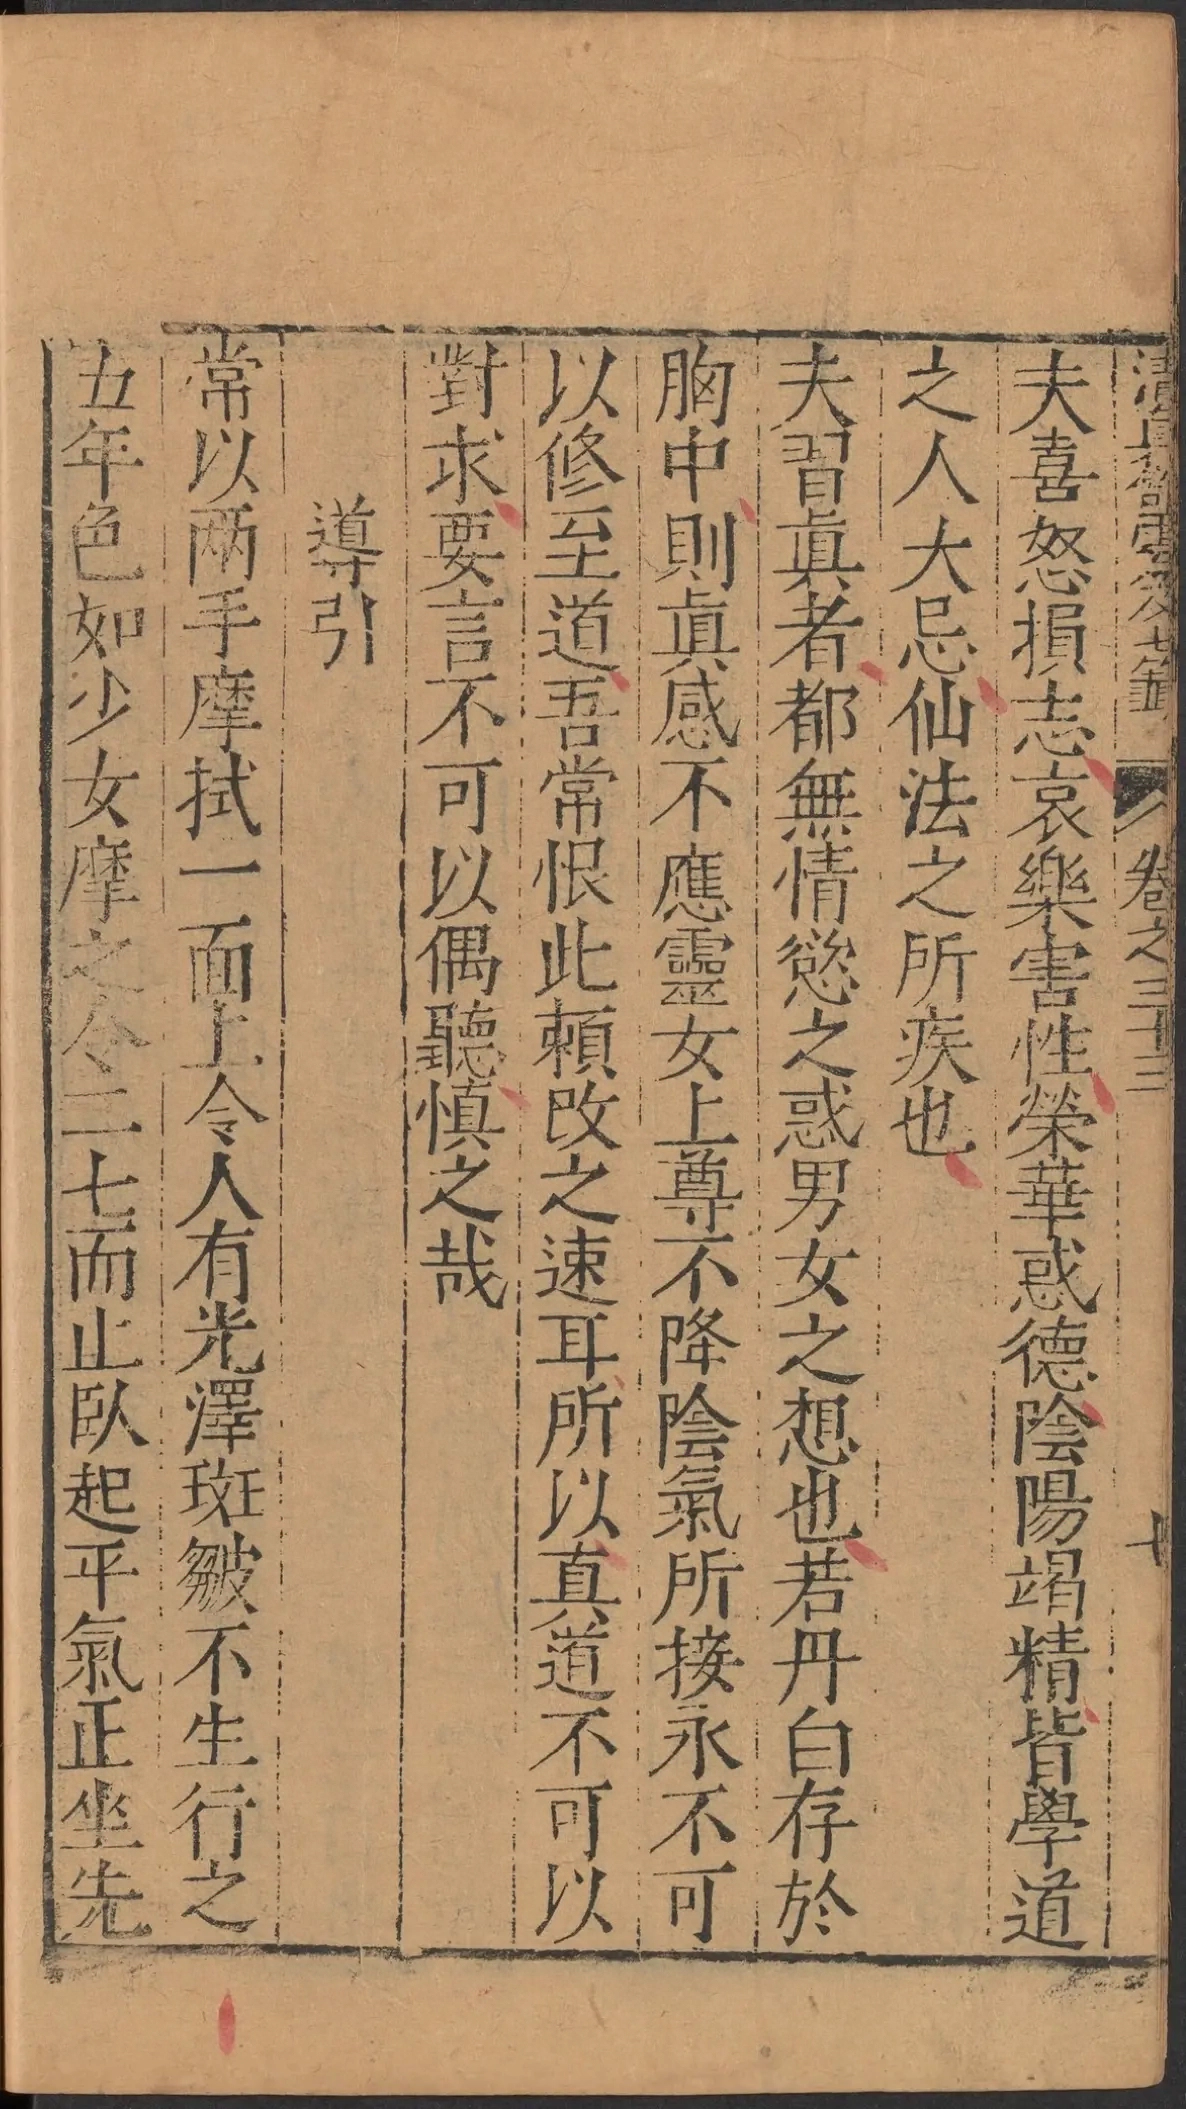 清眞館雲笈七籤 卷之三十三 七
夫喜怒損志哀樂害性榮華惑德陰陽竭精皆學道
之人大忌仙法之所疾也
夫習眞者都無情慾之惑男女之想也若丹白存於
胸中則眞感不應靈女上尊不降陰氣所接永不可
以修至道吾常恨此賴改之速耳所以真道不可以
對求要言不可以偶聽慎之哉
導引
常以两手摩拭一面上令人有光澤斑皺不生行之
五年色如少女摩之令二七而止臥起平氣正坐先